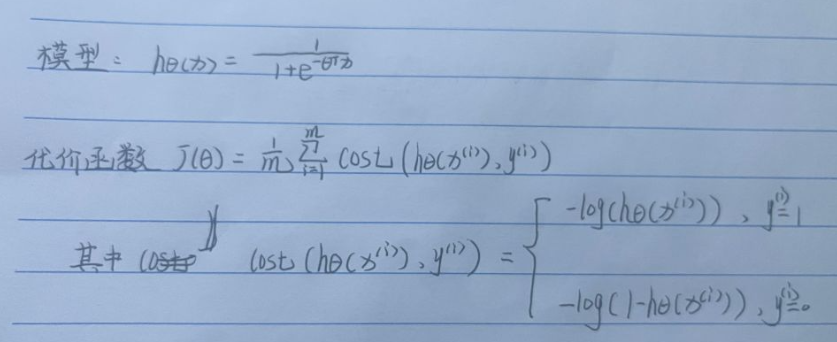 模型: hθ(x) = 1 / (1+e^(-θᵀx))
代价函数 J(θ) = 1/m Σ_{i=1}^{m} cost (hθ(x⁽ⁱ⁾), y⁽ⁱ⁾)
其中 cost (hθ(x⁽ⁱ⁾), y⁽ⁱ⁾) = { -log(hθ(x⁽ⁱ⁾)), y⁽ⁱ⁾=1
-log(1-hθ(x⁽ⁱ⁾)), y⁽ⁱ⁾=0